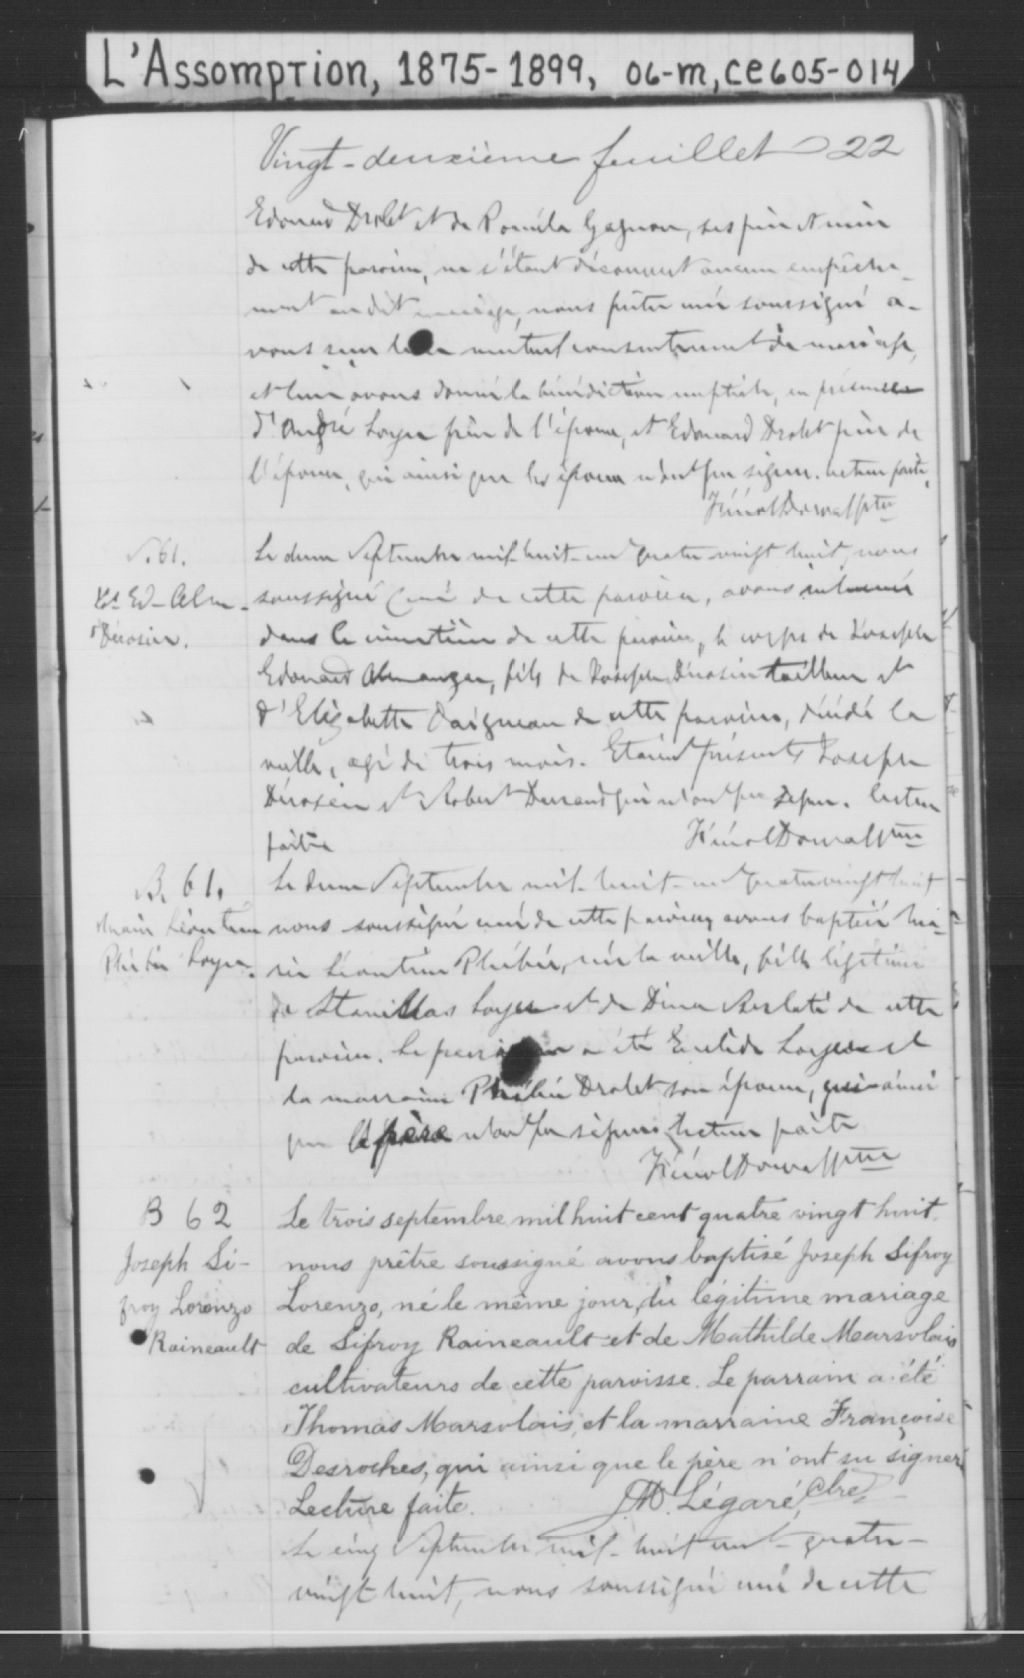 L'Assomption, 1875-1899, 06-m, ce605-014
Vingt-deuxième feuillet 22
Edouard Drolet et de Roméla Gagnon, ses père et mère
de cette paroisse, ne s'étant découvert aucun empêche-
ment au dit mariage, nous prêtre curé soussigné a-
vons reçu leur mutuel consentement de mariage,
et leur avons donné la bénédiction nuptiale, en présence
d'André Loyer père de l'époux, et Edouard Drolet père de
l'épouse, qui ainsi que les époux n'ont su signer. Lecture faite.
Ptre
S. 61.
Ls Ed-Alm-
Désosier.
Le deux Septembre mil-huit-cent quatre vingt huit, nous
soussigné Curé de cette paroisse, avons inhumé
dans le cimetière de cette paroisse, le corps de Joseph
Edouard Almanzar, fils de Joseph tailleur et
d'Elizabeth Daigneau de cette paroisse, décédé la
veille, agé de trois mois. Etaient présents Joseph
et Robert Durand qui n'ont su signer. Lecture
faite
Ptre
B. 61.
Marie Léontine
Phébée Loyer.
Le deux Septembre mil-huit-cent quatre vingt huit
nous soussigné curé de cette paroisse avons baptisé Ma-
rie Léontine Phébée, née la veille, fille légitime
de Stanislas Loyer et de Dina de cette
paroisse. Le parrain a été Euclide Loyer et
la marraine Phébée Drolet son épouse, qui ainsi
que le père n'ont su signer. Lecture faite
Ptre
B 62
Joseph Si-
froy Lorenzo
Raineault
Le trois septembre mil huit cent quatre vingt huit
nous prêtre soussigné avons baptisé Joseph Sifroy
Lorenzo, né le même jour, du légitime mariage
de Sifroy Raineault et de Mathilde Marsolais
cultivateurs de cette paroisse. Le parrain a été
Thomas Marsolais, et la marraine Françoise
Desroches, qui ainsi que le père n'ont su signer
Lecture faite. J.M. Légaré, Ptre
Le cinq Septembre mil-huit cent-quatre-
vingt huit, nous soussigné curé de cette